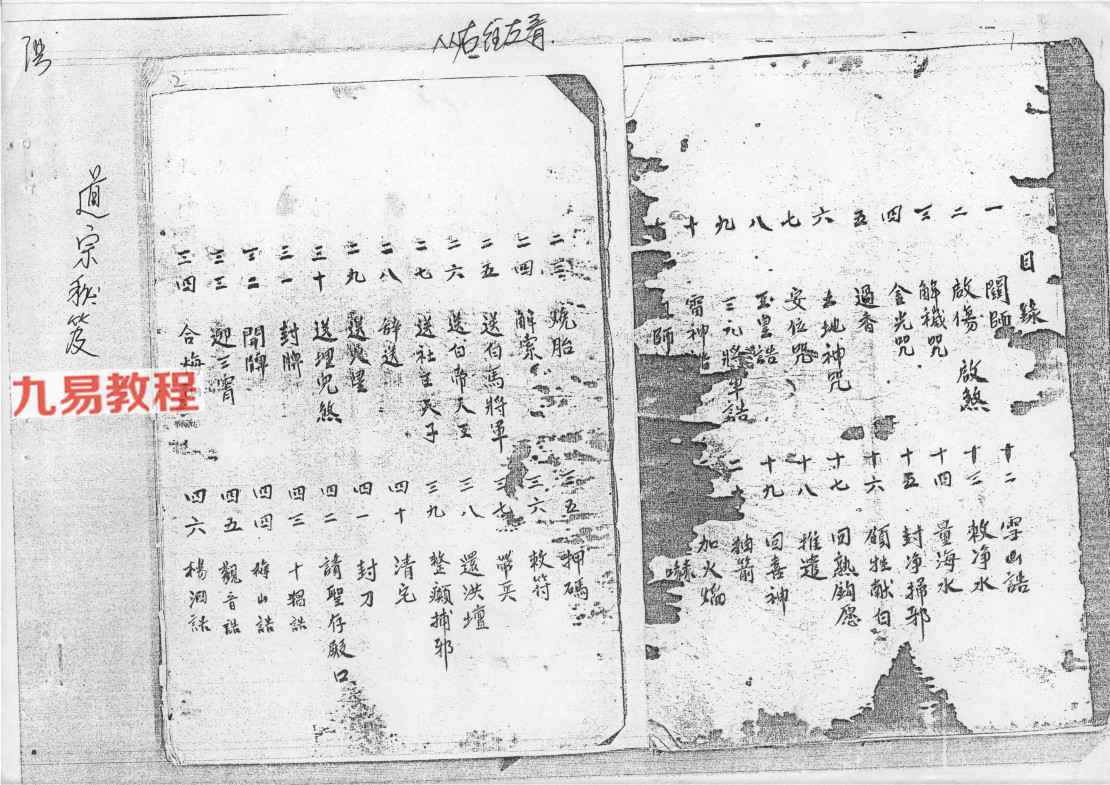 从右往左看
目錄
一 閭師
二 啟傷 啟煞
三 解穢咒
四 金光咒
五 過香
六 土地神咒
七 安位咒
八 玉皇誥
九 三元將軍誥
十 雷神誥
師
十二 雪山誥
十三 敕净水
十四 量海水
十五 封净掃邪
十六 領牲献白
十七 回熟鈎愿
十八 推遣
十九 回喜神
二十 抽箭
加火焰
二三 燒胎
二四 解索
二五 送伯馬將軍
二六 送白帝天王
二七 送社主天子
二八 辞送
二九
三十 送埋兒煞
三一 封牌
三二 開牌
三三 迎三霄
三四 合梅
三五 押碼
三六 敕符
三七 帶兵
三八 還洪壇
三九 整癲捕邪
四十 清宅
四一 封刀
四二 請聖仔殿口
四三 十猖誥
四四 梅山誥
四五 觀音誥
四六 楊泗誥
道宗秘笈
九易教程